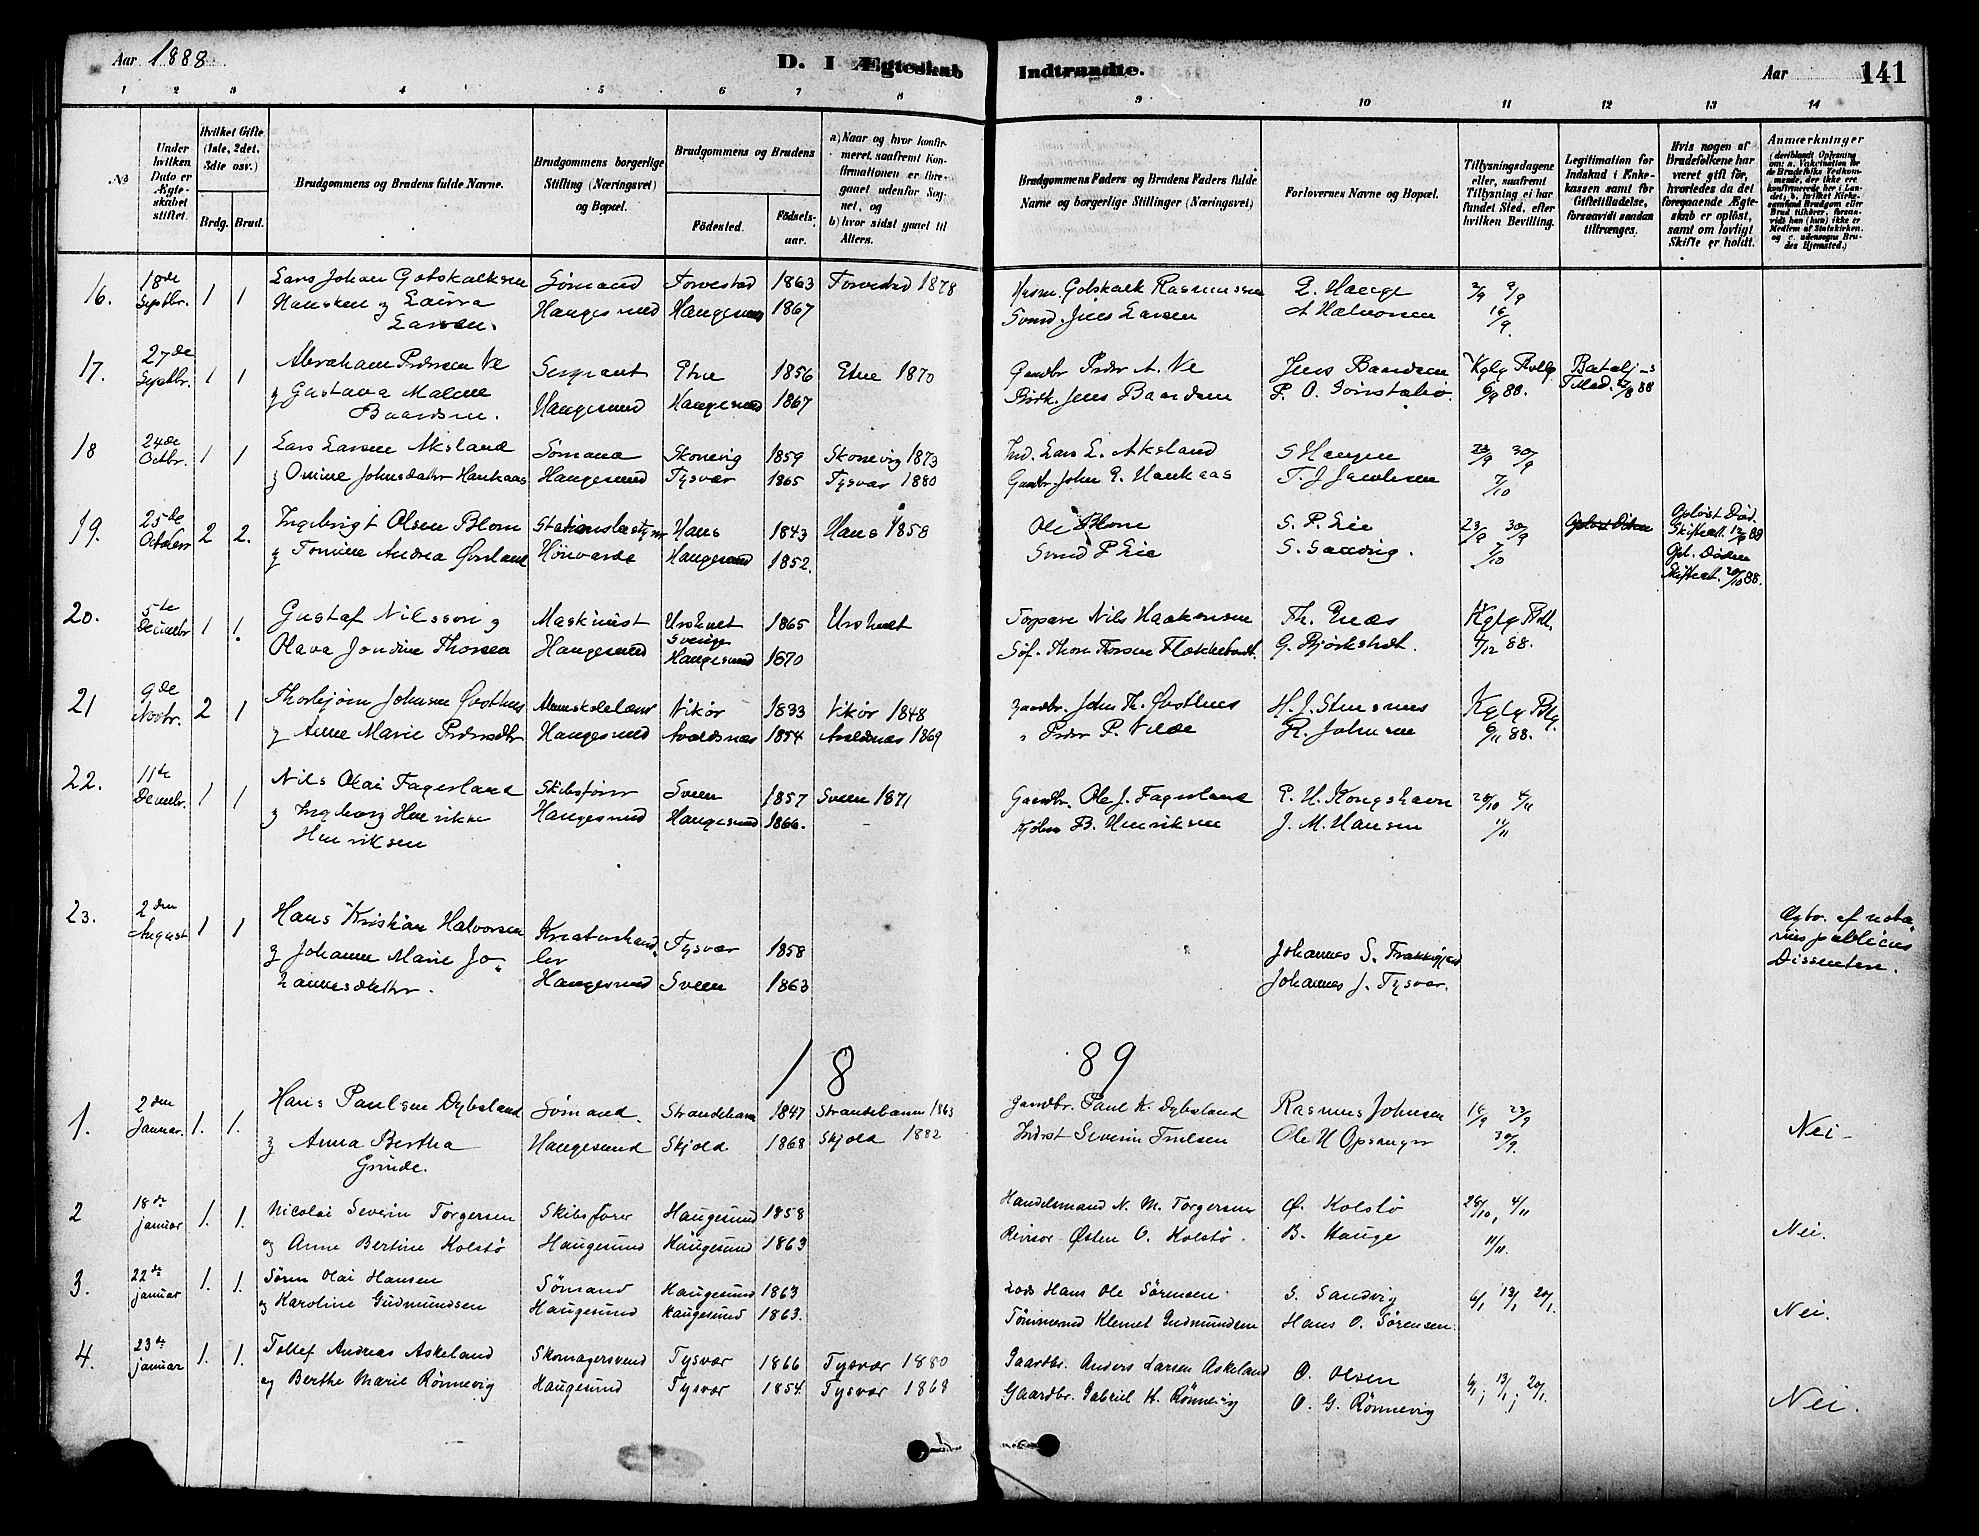 Aar 1888
D. I Ægteskab
Indtraadte.
Aar
141
1 2 3 4 5 6 7 8 9 10 11 12 13 14
No
Under hvilken Dato er Ægteskabet stiftet.
Hvilket Gifte (1ste, 2det, 3die osv.)
Brdg. Brud.
Brudgommens og Brudens fulde Navne.
Brudgommens borgerlige Stilling (Næringsvei) og Bopæl.
Brudgommens og Brudens
Fødested.
Fødselsaar.
a) Naar og hvor konfirmeret, saafremt Konfirmationen er foregaaet udenfor Sognet, og
b) hvor sidst gaaet til Alters.
Brudgommens Faders og Brudens Faders fulde Navne og borgerlige Stillinger (Næringsvei)
Forlovernes Navne og Bopæl.
Tillysningsdagene eller, saafremt Tillysning ei har fundet Sted, efter hvilken Bevilling.
Legitimation for Indskud i Enkekassen samt for Giftetilladelse, forsaavidt saadan tiltrænges.
Hvis nogen af Brudefolkene har været gift før, hvorledes da det foregaaende Ægteskab er opløst, samt om lovligt Skifte er holdt.
Anmærkninger
16. 18de Septbr. 1 1 Lars Johan Gotskalksen Sømand Torvestad 1863 Torvestad 1878 Husm. Gotskalk Rasmussen L. Hauge 2/9 9/9
Hansken og Laura Larsen. Haugesund Haugesund 1867 Svend. Jens Larsen A Halvorsen 16/9.
17. 27de Septbr. 1 1 Abraham Pedersen Ne Sergeant Etne 1856 Etne 1870 Gaardbr. Peder A. Ne Jens Baardsen Kglg Bvlg Batalj-s
og Gustava Malene Baardsen. Haugesund Haugesund 1867 Jens Baardsen P. O. 6/9 88. Tillad. 88
18 24de Octbr. 1 1 Lars Larsen Aksland Sømand Skonevig 1859 Skonevig 1873 Ind. Lars L. Aksland S Hansen 23/9 30/9
og Omine Johnsdatter Haukaas Haugesund Tysvær 1865 Tysvær 1880 Gaardbr. John P. Haukaas T. J Jacobsen 7/10
19. 25de October 2 2. Ingebrigt Olsen Blom Haus 1843 Haus 1858 Ole Blom S. P. Eie 23/9 30/9 Død. Skifteat. 88
og Tomine Andrea Haugesund 1852. Svend P Eie S. Sandvig. 7/10 Døden Skifteat. 20/10 88.
20. 5te Decembr 1 1. Gustaf Nilsson og Maskinist Urshult Sverige 1865 Urshult Torpare Nils Haakensen Th. Kglg Bvl.
Olava Jondine Thorsen Haugesund Haugesund 1870 Søf. Thore Thorsen G. Bjørkstedt. 4/12 88.
21 9de Novbr. 2 1 Thorbjørn Johnsen Østhus Vikør 1833 Vikør 1848 Gaardbr. John Th. Østhus H. J. Stensnes Kglg Blg.
og Anne Marie Pedersdtr Haugesund Avaldsnæs 1854 Avaldsnæs 1869 " Peder P. R. Johnsen 6/11 88.
22. 11te Decembr. 1 1 Nils Olai Fagerland Skibsfører Sveen 1857 Sveen 1871 Gaardbr. Ole J. Fagerland P. H. Kongshavn 28/10 4/11
og Ingeborg Henrikke Henriksen Haugesund Haugesund 1866. B. Henriksen J. M. Hansen 11/11
23. 2den August 1 1 Hans Kristian Halvorsen Kreaturhandler Tysvær 1858 Johannes S.
og Johanne Marie Johannesdatter. Haugesund Sveen 1863 Johannes J. Tysvær. af notarius publicus Dissentere.
18 89
1. 2den Januar. 1. 1. Hans Paulsen Dybsland Sømand. Strandebarm 1847 Strandebarm 1863 Gaardbr. Paul K. Dybsland Rasmus Johnsen 16/9 23/9
og Anna Bertha Grinde. Haugesund Skjold 1868 Skjold 1882 Indrst Severin Ole H Opsanger 30/9. Nei-
2 18de januar 1. 1. Nicolai Severin Torgersen Skibsfører Haugesund 1858 Handelsmand N. M. Torgersen Ø. Kolstø 28/10, 4/11
og Anne Bertine Kolstø Haugesund Haugesund 1863 Revisor Østen O. Kolstø. B. Hauge 11/11. Nei.
3. 22de januar 1. 1. Søren Olai Hansen Sømand Haugesund 1863 Lods Hans Ole Sørensen S. Sandvig 6/1 13/1 20/1.
og Karoline Gudmundsen Haugesund Haugesund 1863. Tømmermd Klemet Gudmundsen Hans O. Sørensen. Nei.
4. 23de januar 1. 1. Tollef Andreas Askeland Skomagersvend Tysvær 1866 Tysvær 1880 Gaardbr. Anders Larsen Askeland O. Olsen 6/1; 13/1; 20/1.
og Berthe Marie Rønnevig Haugesund Tysvær 1854 Tysvær 1869 Gaardbr. Gabriel K. Rønnevig O. G. Rønnevig Nei.